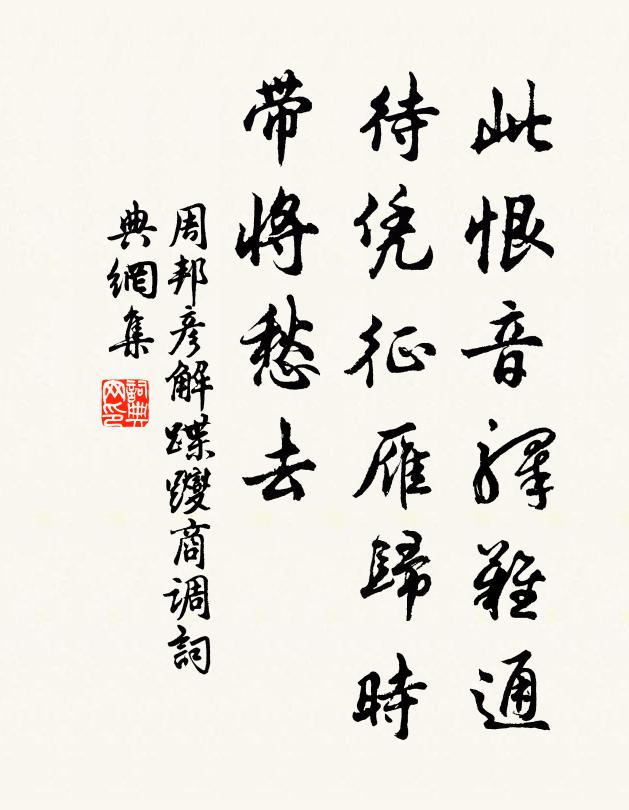 此恨音驛難通
待凭征雁歸時
带將愁去
周邦彦解蹀躞商调詞
典網集
詞典网印